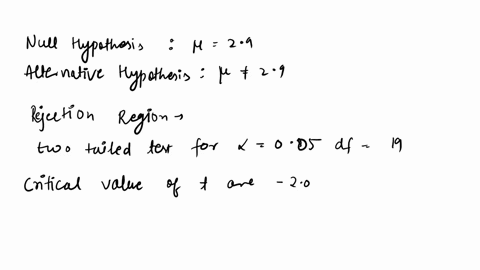 Null Hypothesis : μ = 2.9
Alternative Hypothesis : μ ≠ 2.9
Rejection Region →
two tailed test for α = 0.05 df = 19
Critical value of t are -2.0